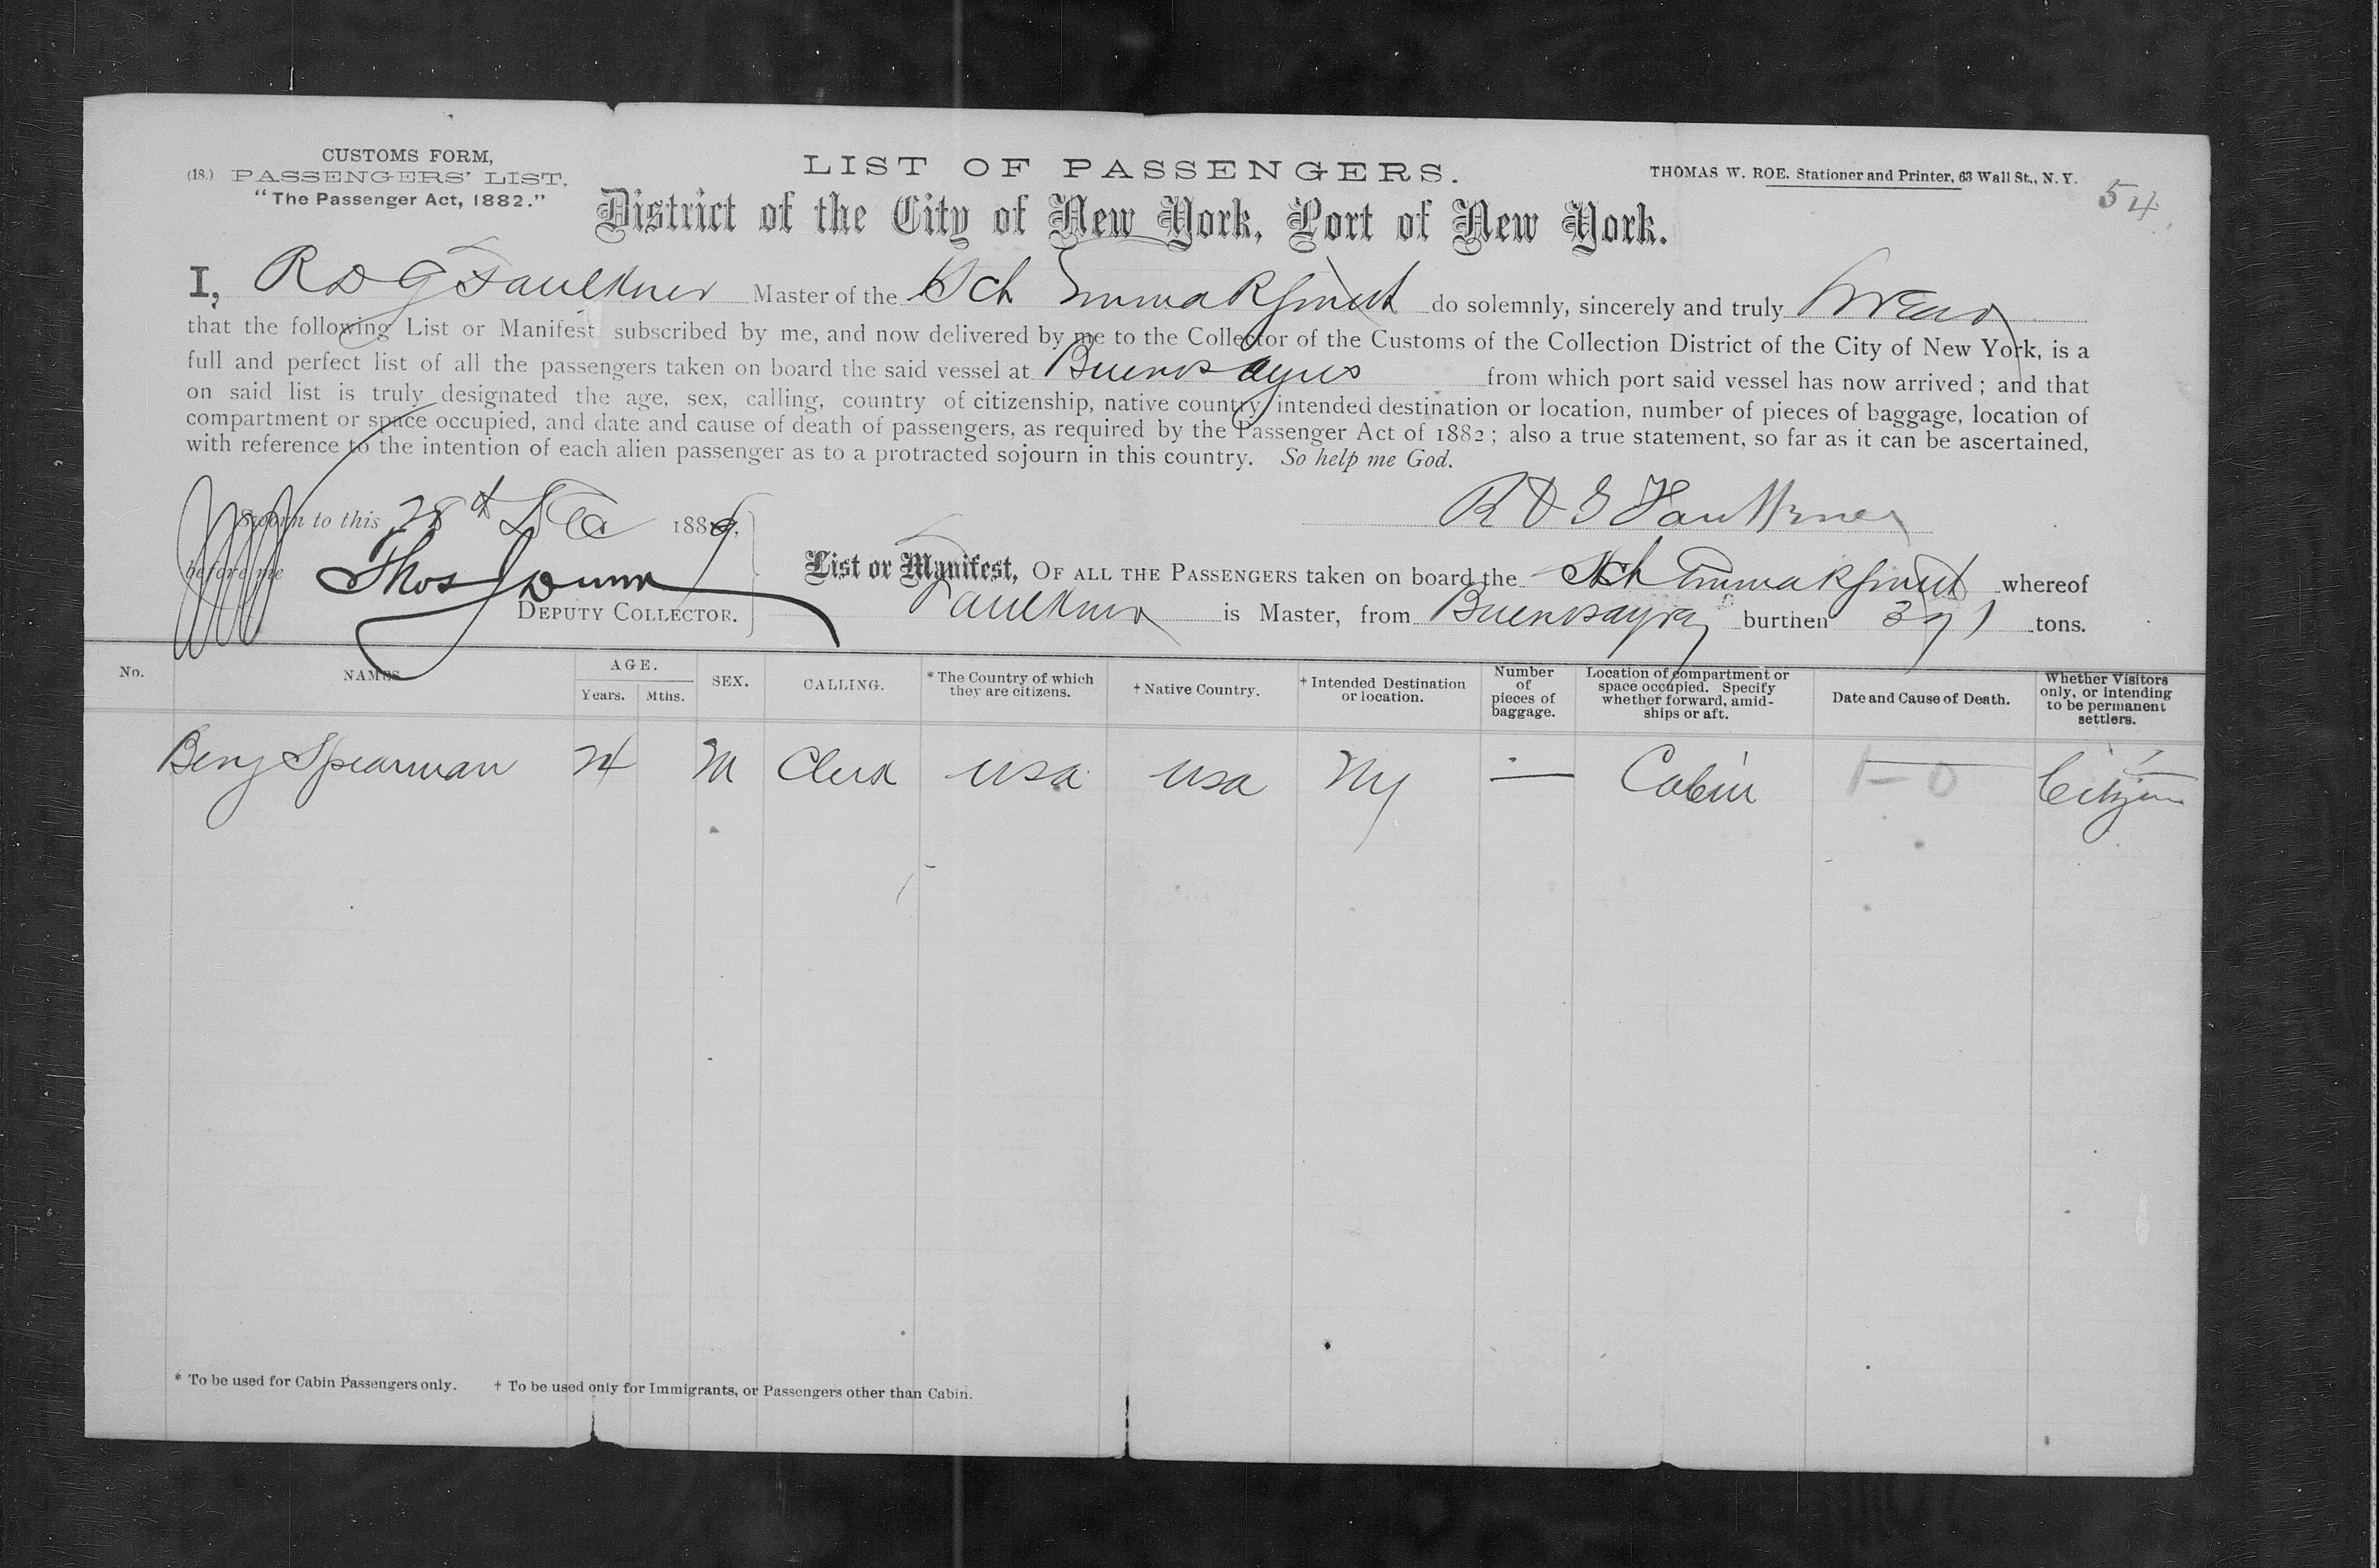 CUSTOMS FORM,
(18.) PASSENGERS' LIST,
"The Passenger Act, 1882."
LIST OF PASSENGERS.
THOMAS W. ROE. Stationer and Printer, 63 Wall St., N. Y.
54
District of the City of New York, Port of New York.
I, R D G Faulkner Master of the Sch Emma R do solemnly, sincerely and truly swear
that the following List or Manifest subscribed by me, and now delivered by me to the Collector of the Customs of the Collection District of the City of New York, is a
full and perfect list of all the passengers taken on board the said vessel at Buenos Ayres from which port said vessel has now arrived; and that
on said list is truly designated the age, sex, calling, country of citizenship, native country, intended destination or location, number of pieces of baggage, location of
compartment or space occupied, and date and cause of death of passengers, as required by the Passenger Act of 1882; also a true statement, so far as it can be ascertained,
with reference to the intention of each alien passenger as to a protracted sojourn in this country. So help me God.
R D G Faulkner
Sworn to this 28th Dec 1889.
before me Thos J Dunn
DEPUTY COLLECTOR.
List or Manifest, OF ALL THE PASSENGERS taken on board the Sch Emma R whereof
Faulkner is Master, from Buenos Ayres burthen 391 tons.
No. NAMES AGE. Years. Mths. SEX. CALLING. * The Country of which they are citizens. † Native Country. † Intended Destination or location. Number of pieces of baggage. Location of compartment or space occupied. Specify whether forward, amidships or aft. Date and Cause of Death. Whether Visitors only, or intending to be permanent settlers.
Benj Spearman 24 M Clerk USA USA NY — Cabin 1-0 Citizen
* To be used for Cabin Passengers only. † To be used only for Immigrants, or Passengers other than Cabin.